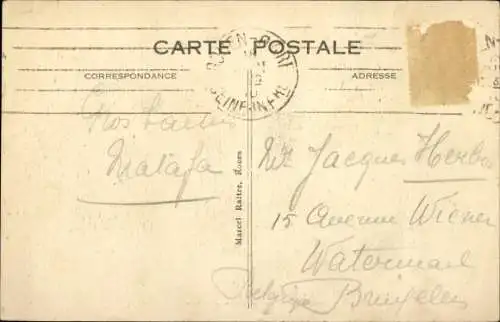 CARTE POSTALE
CORRESPONDANCE
ADRESSE
ROUEN-PORT
SEINE-INFRE
Gros baisers
Matafa
Marcel Raitre, Rouen
Jacques
15 Avenue Wiener
Watermael
Belgique Bruxelles